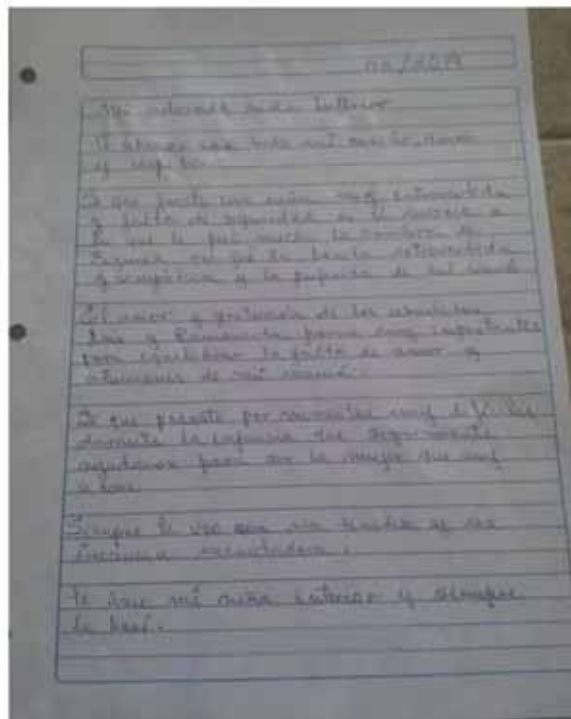 /2019
Mi adorada niña interior
Te abrazo con todo mi cariño, amor
y
Se que fuiste una niña muy introvertida
y falta de seguridad en ti misma a
lo que te pesó mucho la sombra de
en ser la bonita extrovertida
y simpática y la preferida de tu mamá
El amor y protección de los abuelitos
y fueron muy importantes
para equilibrar la falta de amor y
atenciones de mi mamá.
Se que pasaste por momentos muy difíciles
durante la infancia que seguramente
ayudaron para ser la mujer que soy
ahora.
Siempre te veo con una y esa
inocencia encantadora.
Te amo mi niña interior y siempre
lo haré.